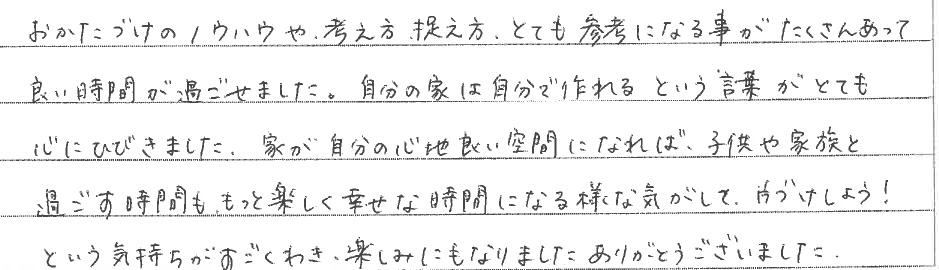 おかたづけのノウハウや、考え方、捉え方、とても参考になる事がたくさんあって
良い時間が過ごせました。自分の家は自分で作れるという言葉がとても
心にひびきました。家が自分の心地良い空間になれば、子供や家族と
過ごす時間も、もっと楽しく幸せな時間になる様な気がして、片づけしよう!
という気持ちがすごくわき、楽しみにもなりました ありがとうございました.